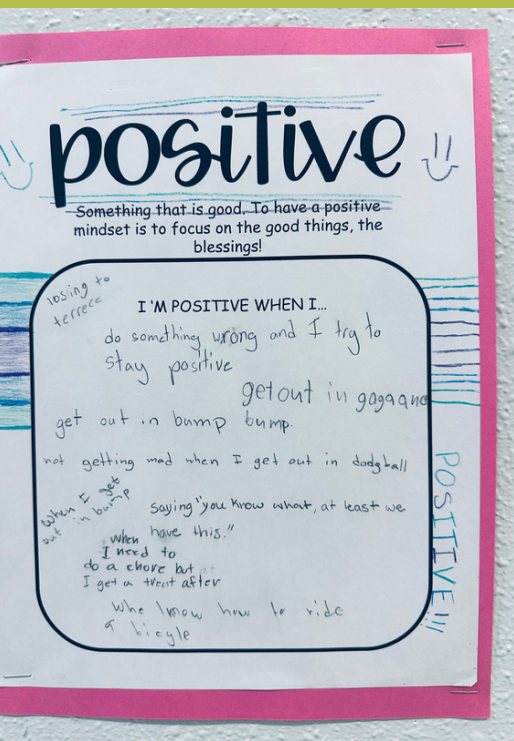 positive
Something that is good. To have a positive
mindset is to focus on the good things, the
blessings!
losing to
terrece
I'M POSITIVE WHEN I...
do something wrong and I try to
stay positive
get out in gaga and
get out in bump bump.
not getting mad when I get out in dodgball
When I get
out in bump
Saying "you know what, at least we
have this."
When
I need to
do a chore but
I get a treat after
Whe I know how to ride
a bicycle
POSITIVE!!!